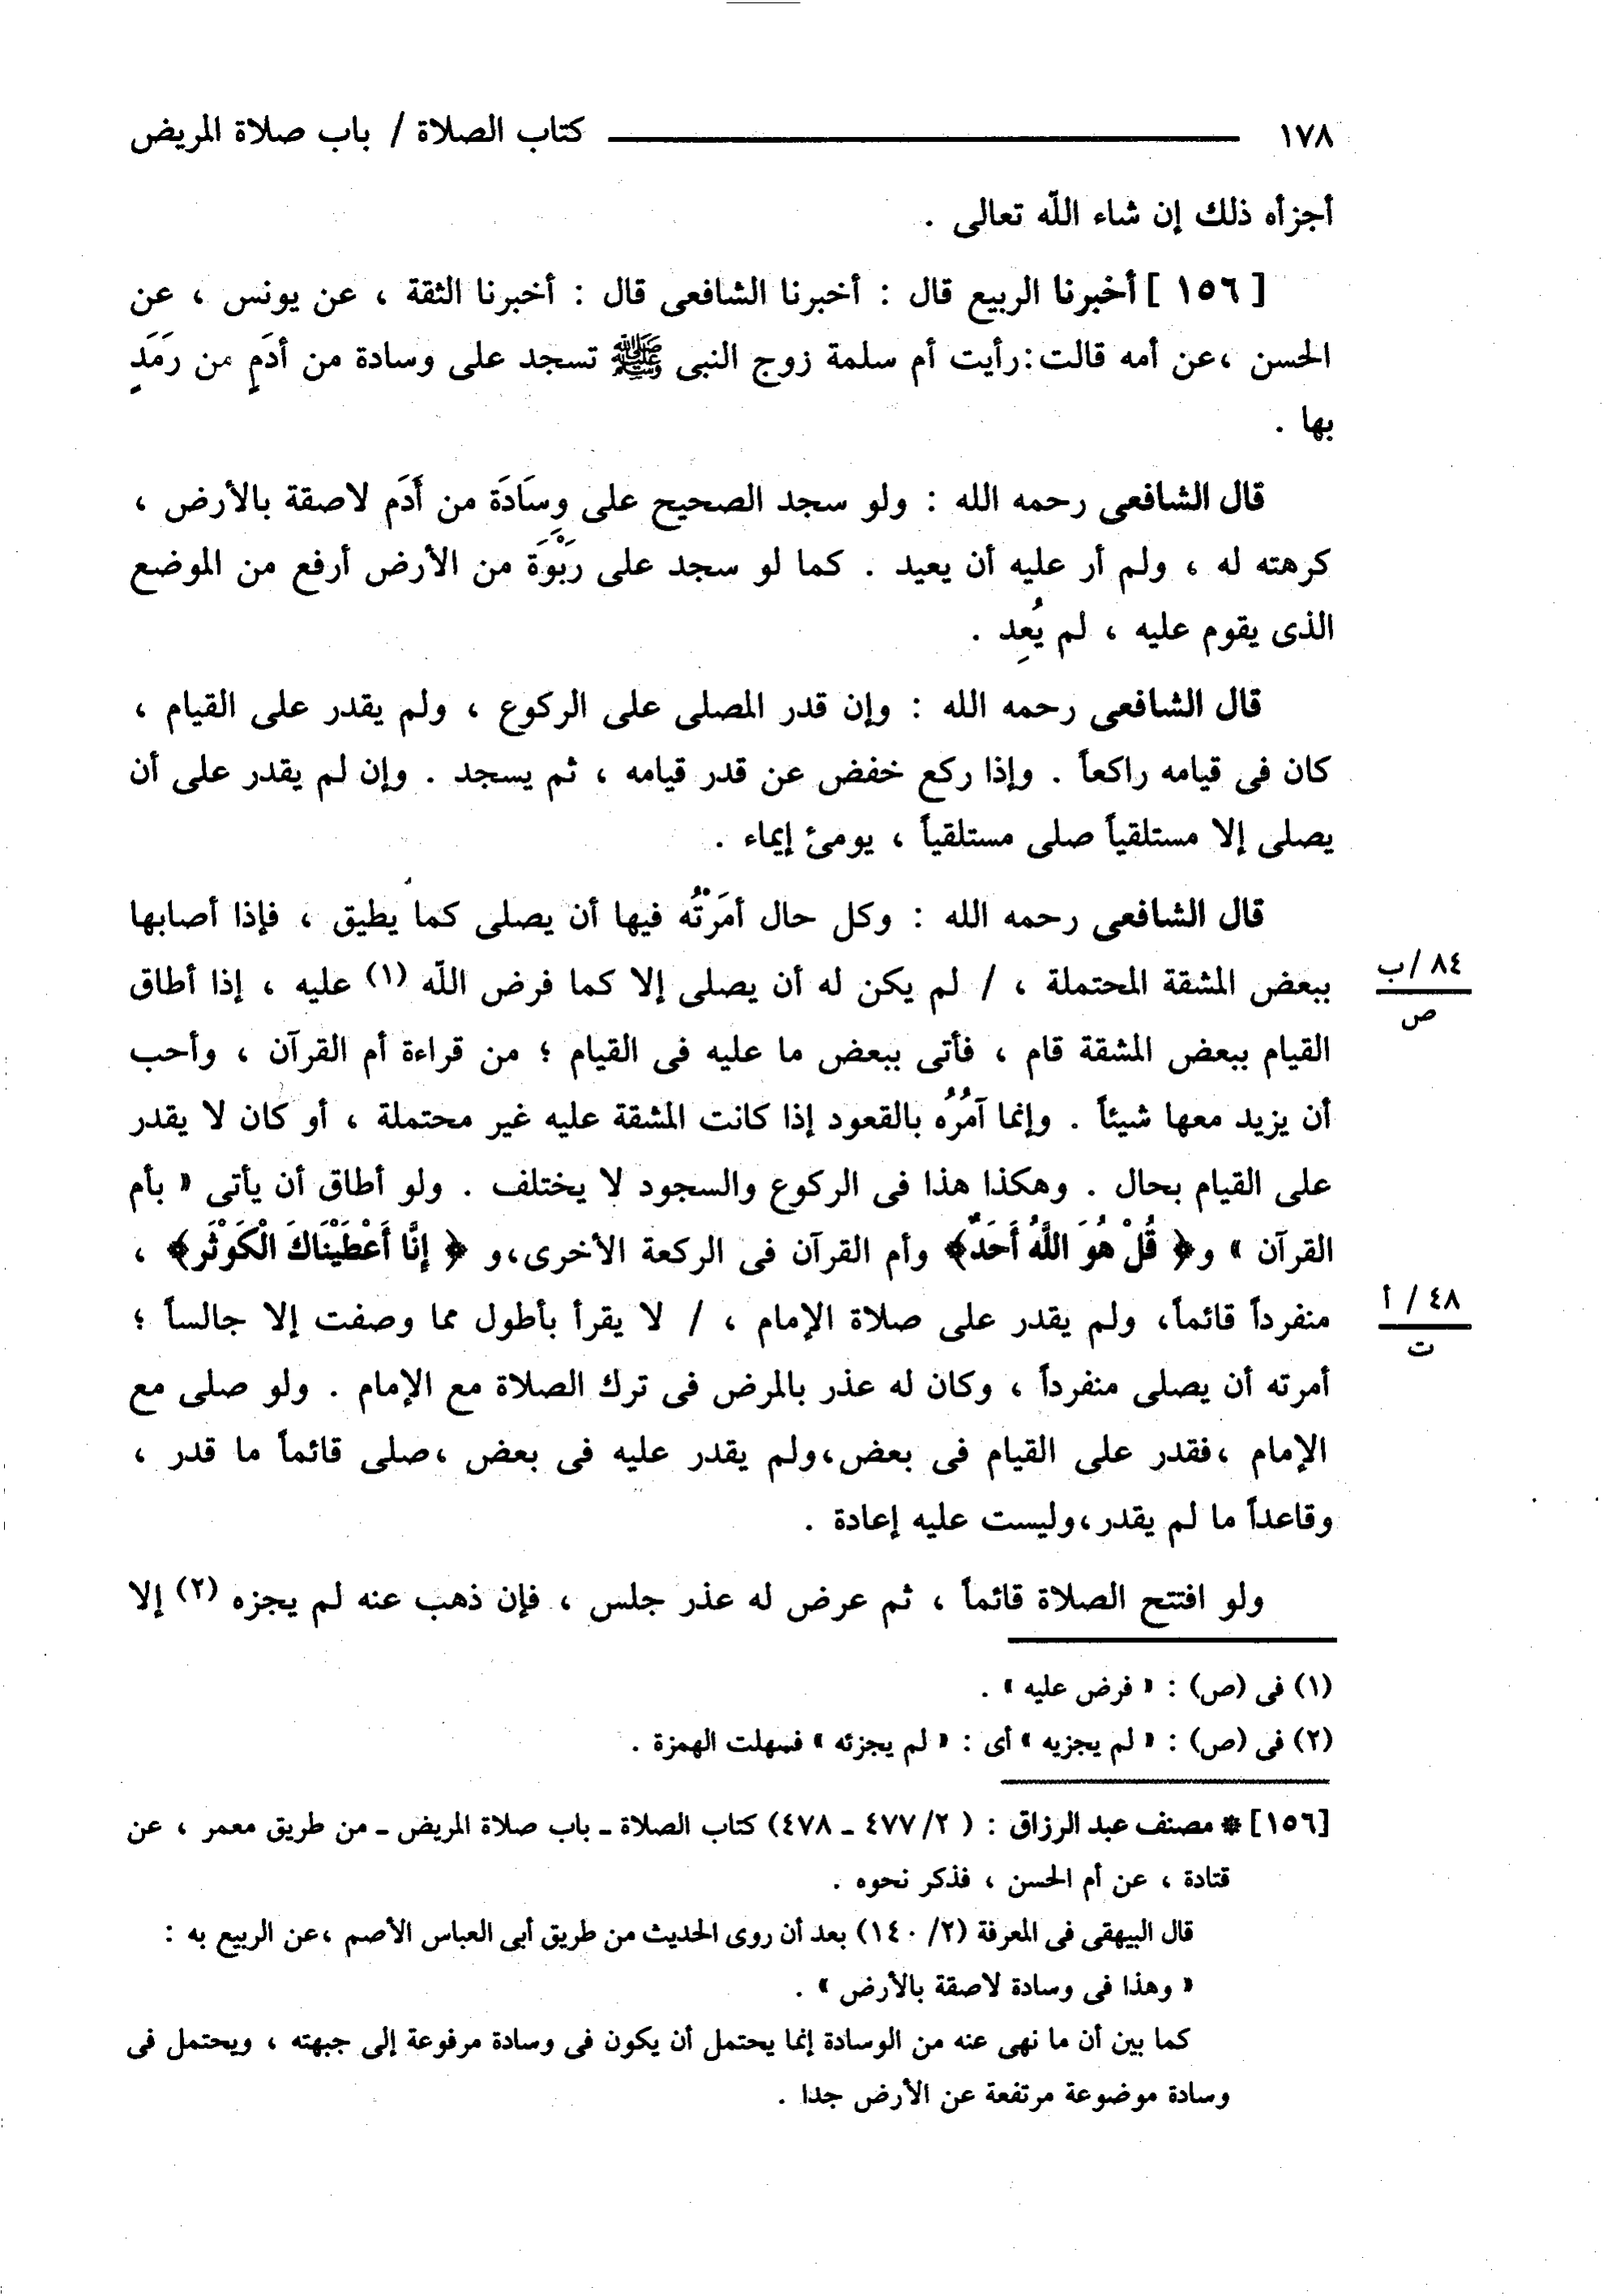 ١٧٨ كتاب الصلاة / باب صلاة المريض
أجزأه ذلك إن شاء اللّه تعالى .
[ ١٥٦ ] أخبرنا الربيع قال : أخبرنا الشافعى قال : أخبرنا الثقة ، عن يونس ، عن
الحسن ،عن أمه قالت:رأيت أم سلمة زوج النبى ﷺ تسجد على وسادة من أدَمٍ من رَمَدٍ
بها .
قال الشافعى رحمه الله : ولو سجد الصحيح على وِسَادَة من أَدَم لاصقة بالأرض ،
كرهته له ، ولم أر عليه أن يعيد . كما لو سجد على رَبْوَة من الأرض أرفع من الموضع
الذى يقوم عليه ، لم يُعِد .
قال الشافعى رحمه الله : وإن قدر المصلى على الركوع ، ولم يقدر على القيام ،
كان فى قيامه راكعاً . وإذا ركع خفض عن قدر قيامه ، ثم يسجد . وإن لم يقدر على أن
يصلى إلا مستلقياً صلى مستلقياً ، يومئ إيماء .
قال الشافعى رحمه الله : وكل حال أمَرْتُه فيها أن يصلى كما يطيق ، فإذا أصابها
ببعض المشقة المحتملة ، / لم يكن له أن يصلى إلا كما فرض اللّه (١) عليه ، إذا أطاق
٨٤ /ب
ص
القيام ببعض المشقة قام ، فأتى ببعض ما عليه فى القيام ؛ من قراءة أم القرآن ، وأحب
أن يزيد معها شيئاً . وإنما آمُرُه بالقعود إذا كانت المشقة عليه غير محتملة ، أو كان لا يقدر
على القيام بحال . وهكذا هذا فى الركوع والسجود لا يختلف . ولو أطاق أن يأتى « بأم
القرآن » و﴿ قُلْ هُوَ اللَّهُ أَحَدٌ﴾ وأم القرآن فى الركعة الأخرى،و ﴿ إِنَّا أَعْطَيْنَاكَ الْكَوْثَر﴾ ،
منفرداً قائماً، ولم يقدر على صلاة الإمام ، / لا يقرأ بأطول مما وصفت إلا جالساً ؛
٤٨ / أ
ت
أمرته أن يصلى منفرداً ، وكان له عذر بالمرض فى ترك الصلاة مع الإمام . ولو صلى مع
الإمام ،فقدر على القيام فى بعض،ولم يقدر عليه فى بعض ،صلى قائماً ما قدر ،
وقاعداً ما لم يقدر،وليست عليه إعادة .
ولو افتتح الصلاة قائماً ، ثم عرض له عذر جلس ، فإن ذهب عنه لم يجزه (٢) إلا
(١) فى (ص) : « فرض عليه » .
(٢) فى (ص) : « لم يجزيه » أى : « لم يجزئه » فسهلت الهمزة .
[١٥٦] * مصنف عبد الرزاق : ( ٤٧٧/٢ ـ ٤٧٨) كتاب الصلاة ـ باب صلاة المريض ـ من طريق معمر ، عن
قتادة ، عن أم الحسن ، فذكر نحوه .
قال البيهقى فى المعرفة (٢/ ١٤٠) بعد أن روى الحديث من طريق أبى العباس الأصم ،عن الربيع به :
« وهذا فى وسادة لاصقة بالأرض » .
كما بين أن ما نهى عنه من الوسادة إنما يحتمل أن يكون فى وسادة مرفوعة إلى جبهته ، ويحتمل فى
وسادة موضوعة مرتفعة عن الأرض جدا .